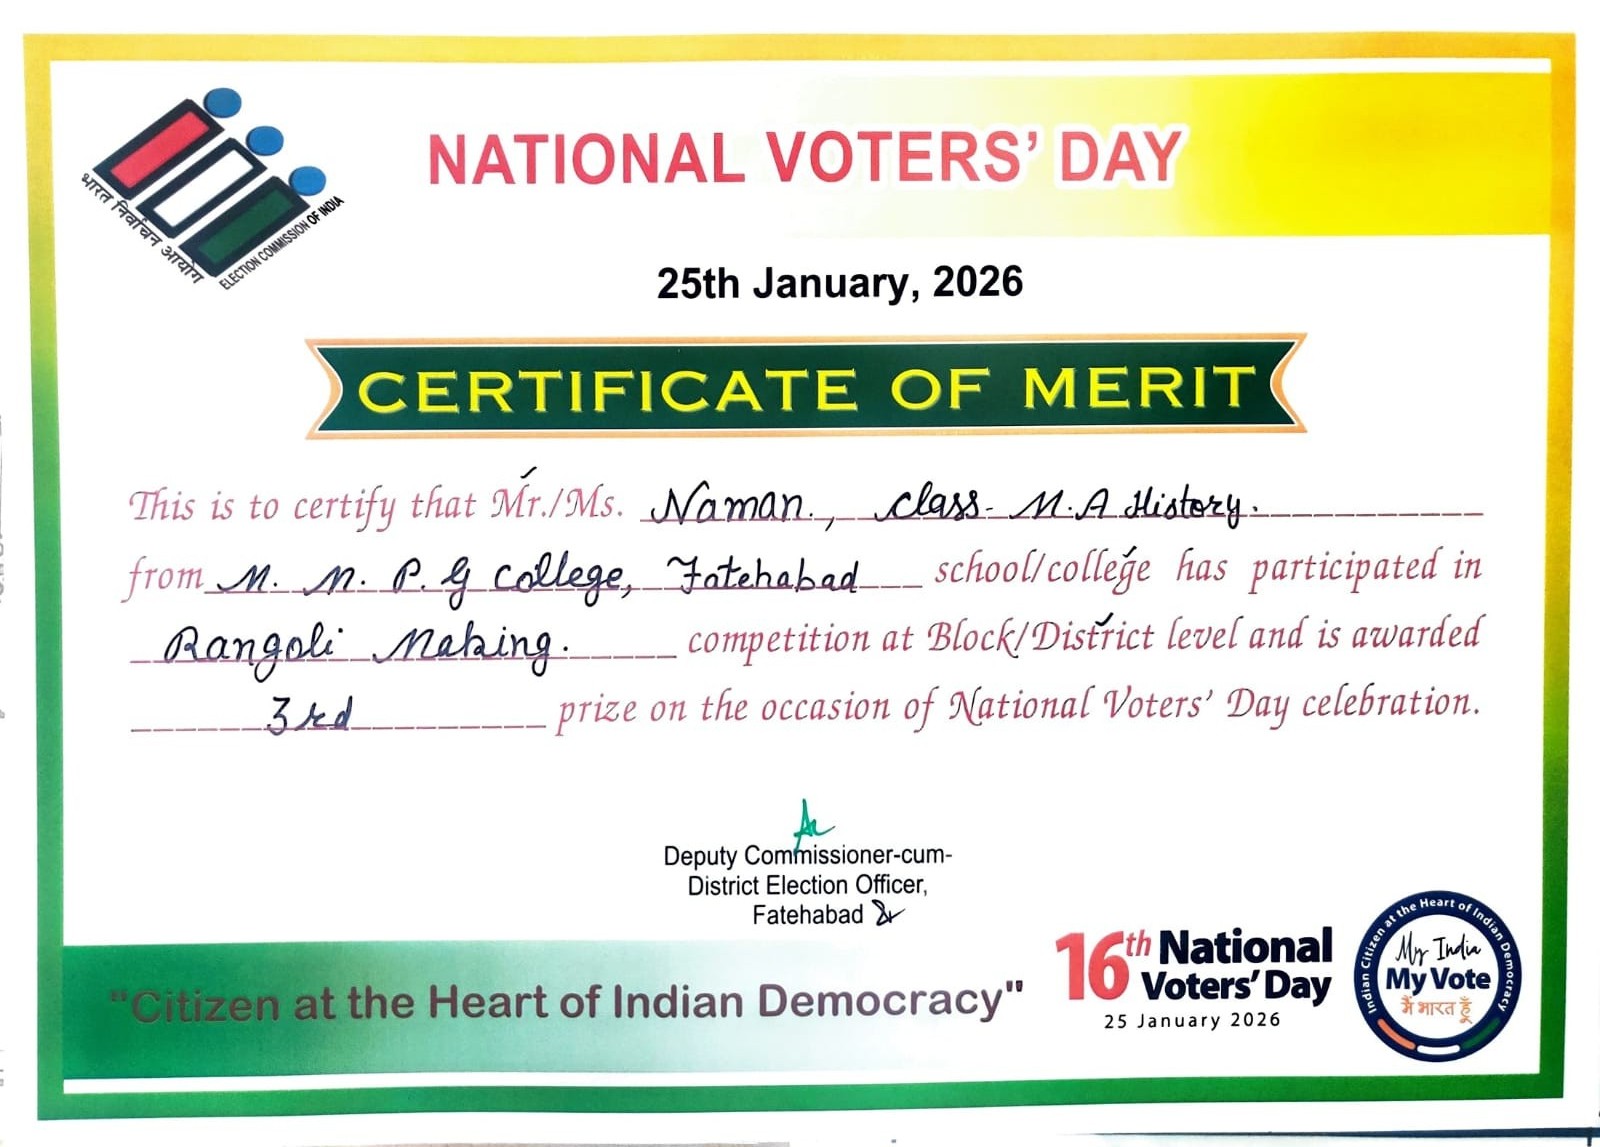 भारत निर्वाचन आयोग
ELECTION COMMISSION OF INDIA
NATIONAL VOTERS' DAY
25th January, 2026
CERTIFICATE OF MERIT
This is to certify that Mr./Ms. Naman., class- M.A History.
from M. M. P. G College, Fatehabad school/college has participated in
Rangoli Making. competition at Block/District level and is awarded
3rd prize on the occasion of National Voters' Day celebration.
Deputy Commissioner-cum-
District Election Officer,
Fatehabad
"Citizen at the Heart of Indian Democracy"
16th National
Voters' Day
25 January 2026
Indian Citizen at the Heart of Indian Democracy
My India
My Vote
मैं भारत हूँ